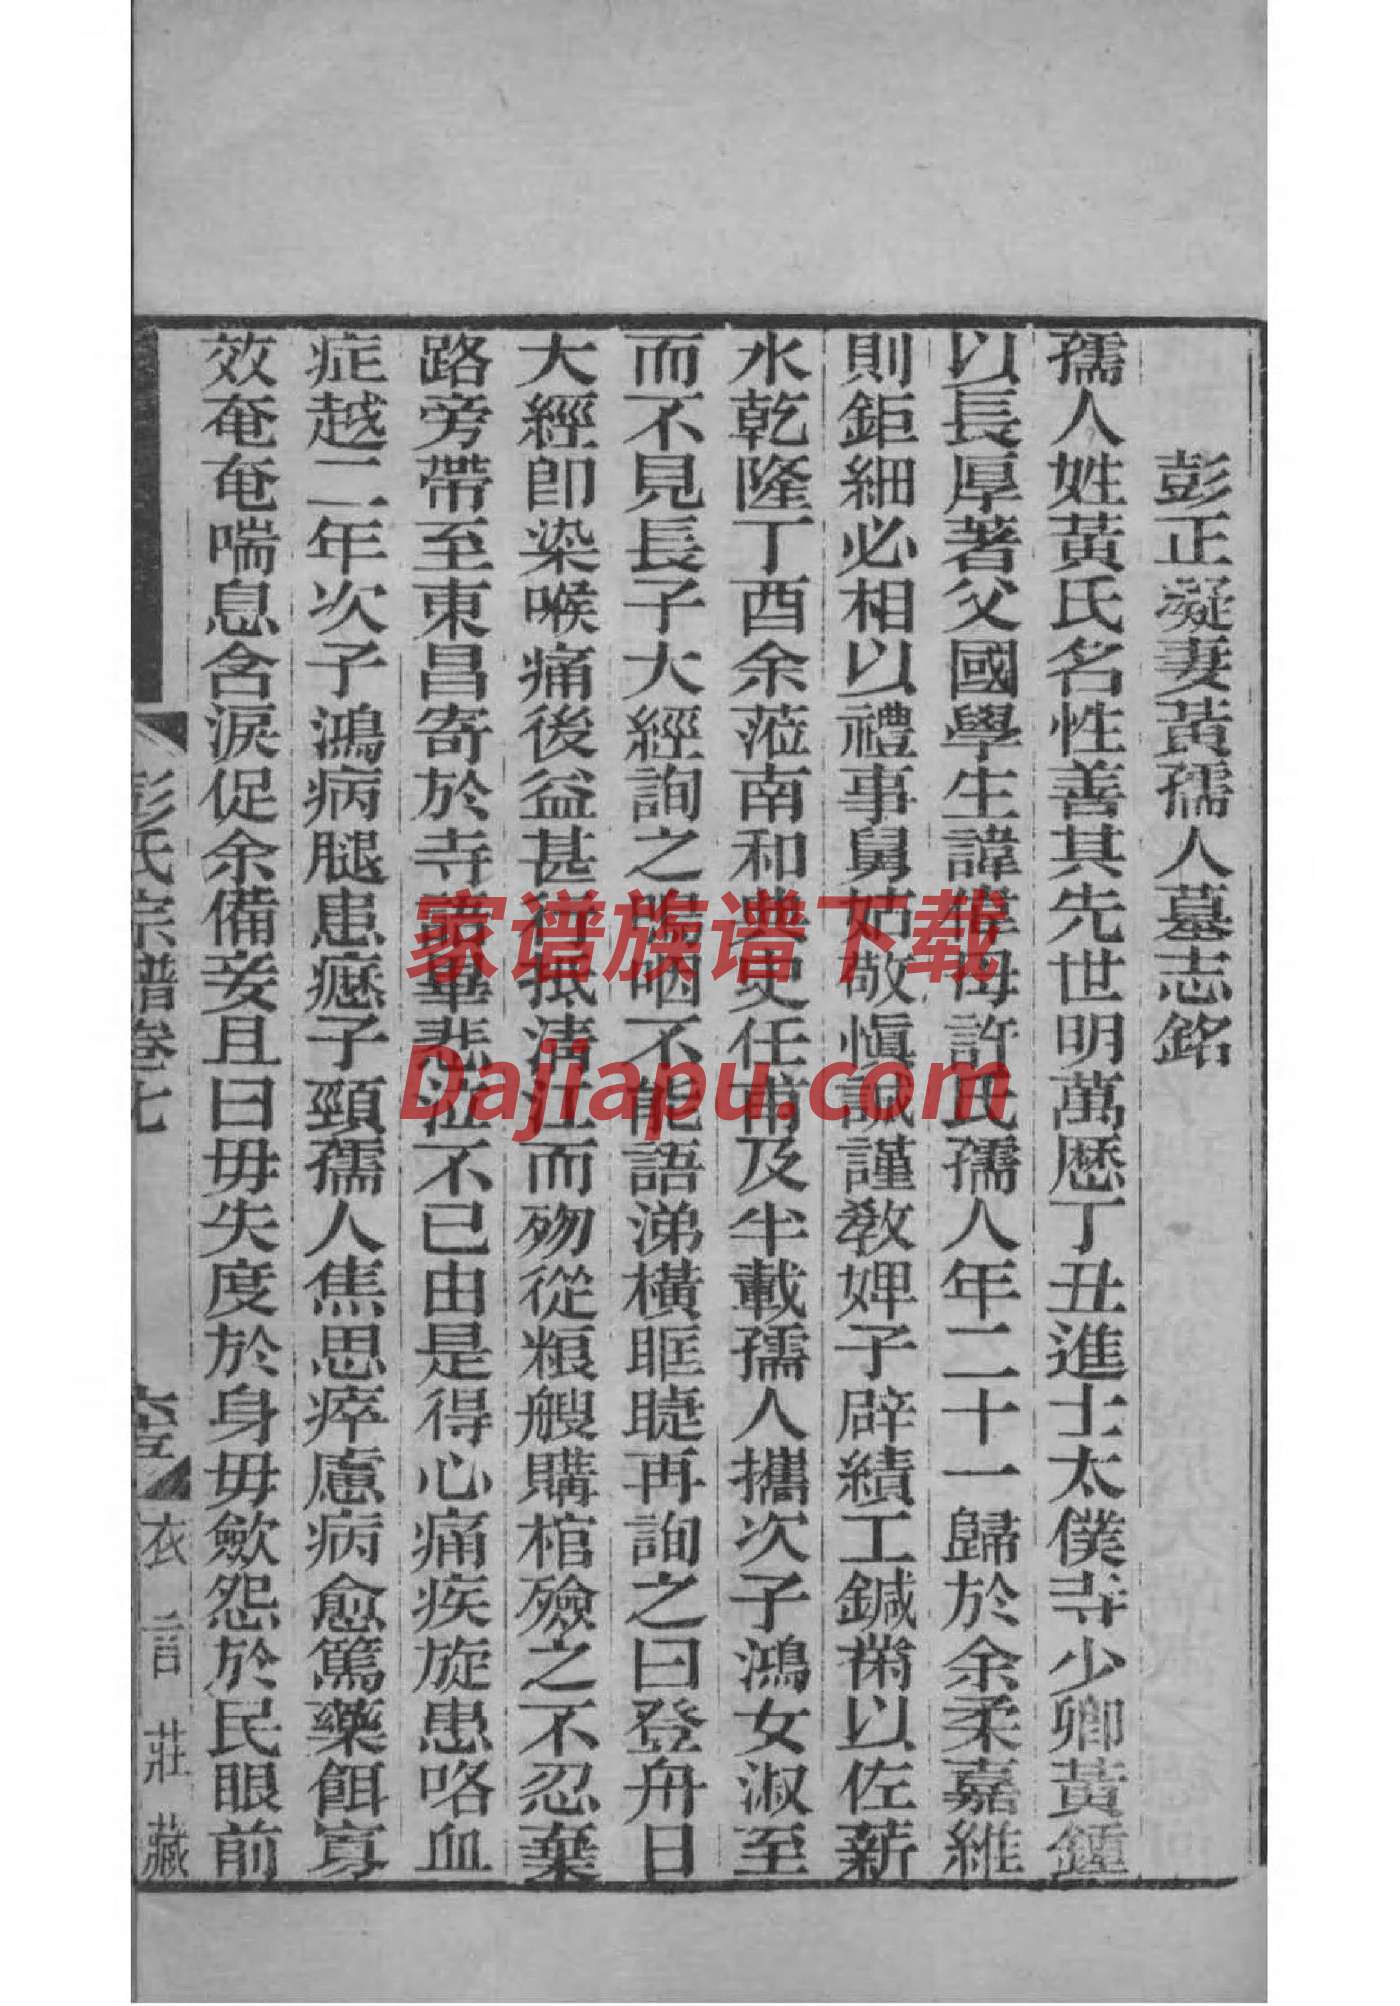 彭正凝妻黃孺人墓志銘
孺人姓黃氏名性善其先世明萬歷丁丑進士太僕寺少卿黃鍾
以長厚著父國學生諱瑋母許氏孺人年二十一歸於余柔嘉維
則鉅細必相以禮事舅姑敬愼誠謹敎婢子辟績工鍼黹以佐薪
水乾隆丁酉余蒞南和典史任甫及半載孺人攜次子鴻女淑至
而不見長子大經詢之嗚咽不能語涕橫眶睫再詢之曰登舟日
大經卽染喉痛後益甚行抵淸江而歿從粮艘購棺殮之不忍棄
路旁帶至東昌寄於寺言畢悲泣不已由是得心痛疾旋患咯血
症越二年次子鴻病腿患癧子頸孺人焦思瘁慮病愈篤藥餌寡
效奄奄喘息含淚促余備妾且曰毋失度於身毋歛怨於民眼前
彭氏宗譜卷七
衣言莊藏
家谱族谱下载
Dajiapu.com